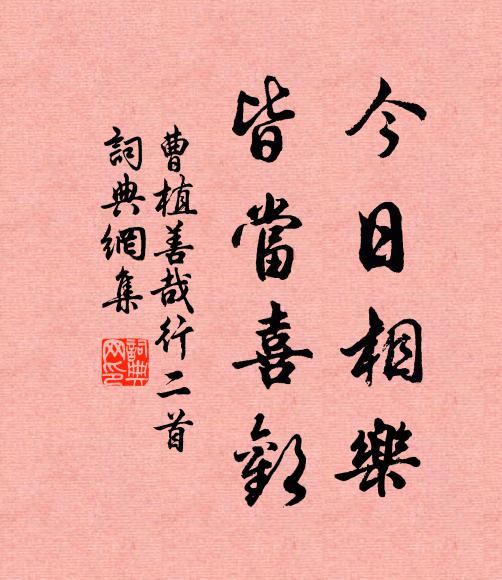 今日相樂
皆當喜歡
曹植善哉行二首
詞典網集
詞典
网印